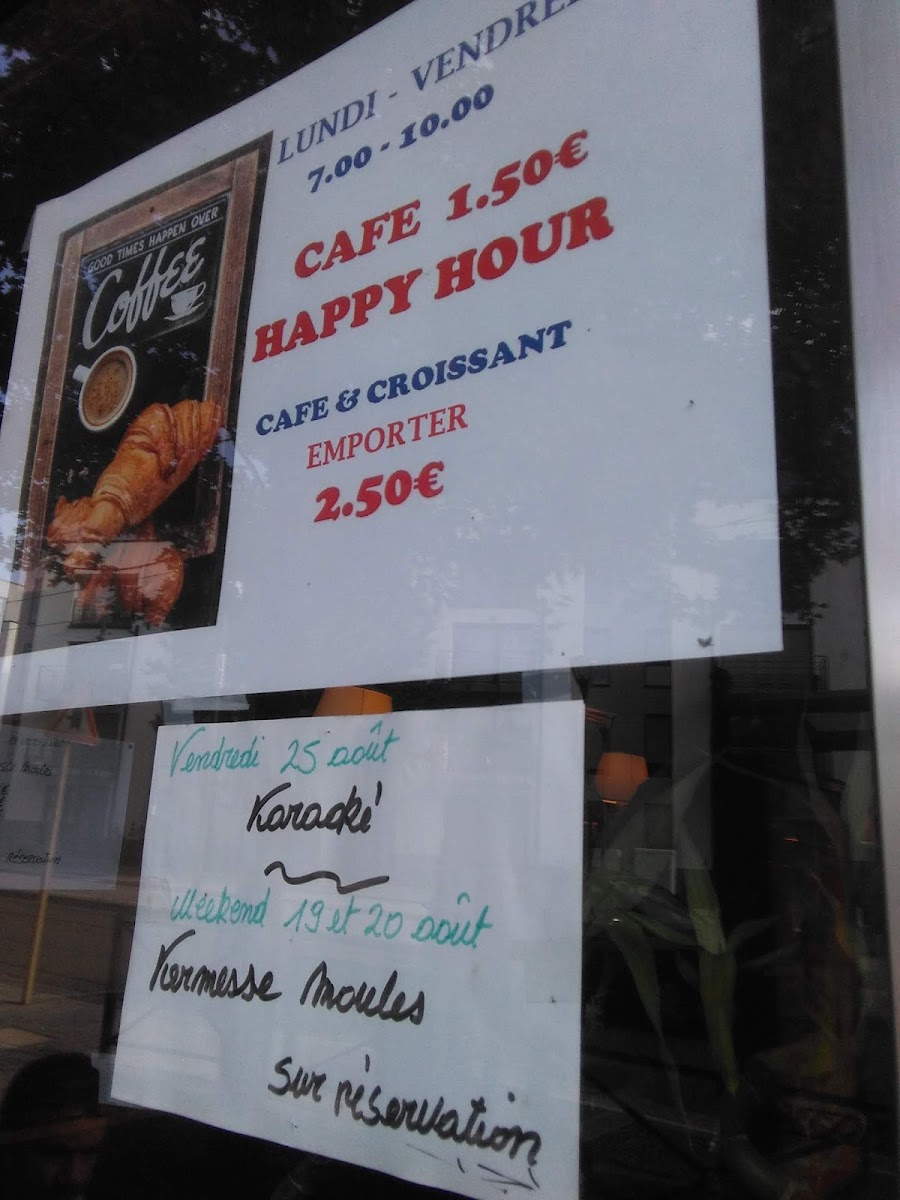 LUNDI - VENDRE
7.00 - 10.00
CAFE 1.50€
HAPPY HOUR
CAFE & CROISSANT
EMPORTER
2.50€
GOOD TIMES HAPPEN OVER
Coffee
Vendredi 25 août
Karaoké
Weekend 19 et 20 août
Kermesse Moules
sur réservation
Moules
réservation